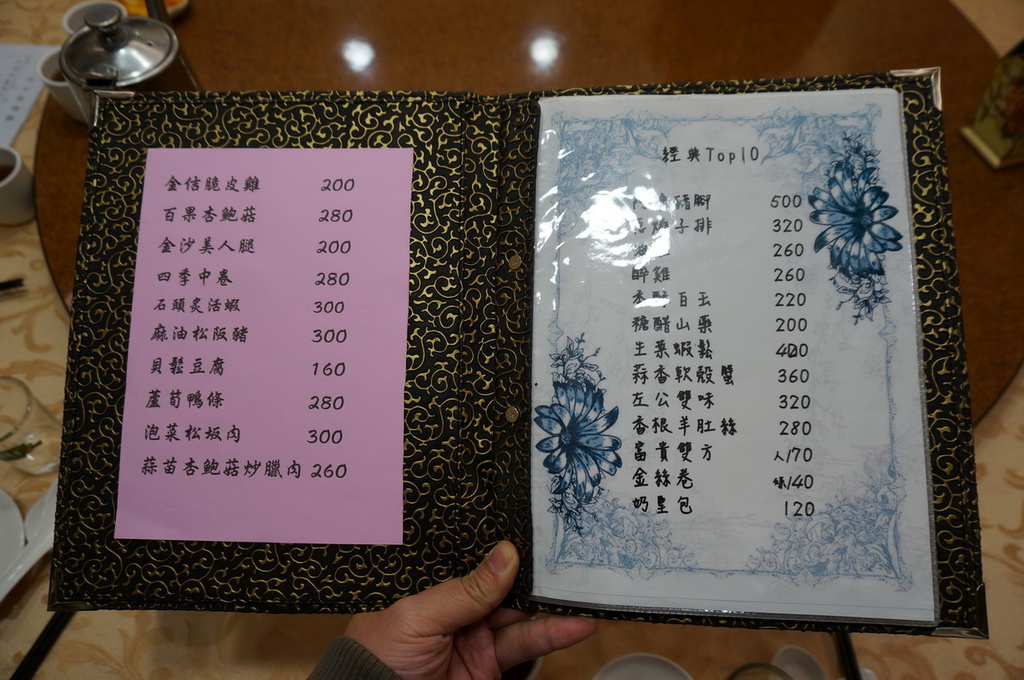 金信脆皮雞 200
百果杏鮑菇 280
金沙美人腿 200
四季中卷 280
石頭炙活蝦 300
麻油松阪豬 300
貝鬆豆腐 160
蘆荀鴨條 280
泡菜松坂肉 300
蒜苗杏鮑菇炒臘肉 260
經典Top10
豬腳 500
子排 320
260
醉雞 260
香酥百玉 220
糖醋山藥 200
生菜蝦鬆 400
蒜香軟殼蟹 360
左公雙味 320
香根羊肚絲 280
富貴雙方 人/70
金絲卷 條/40
奶皇包 120